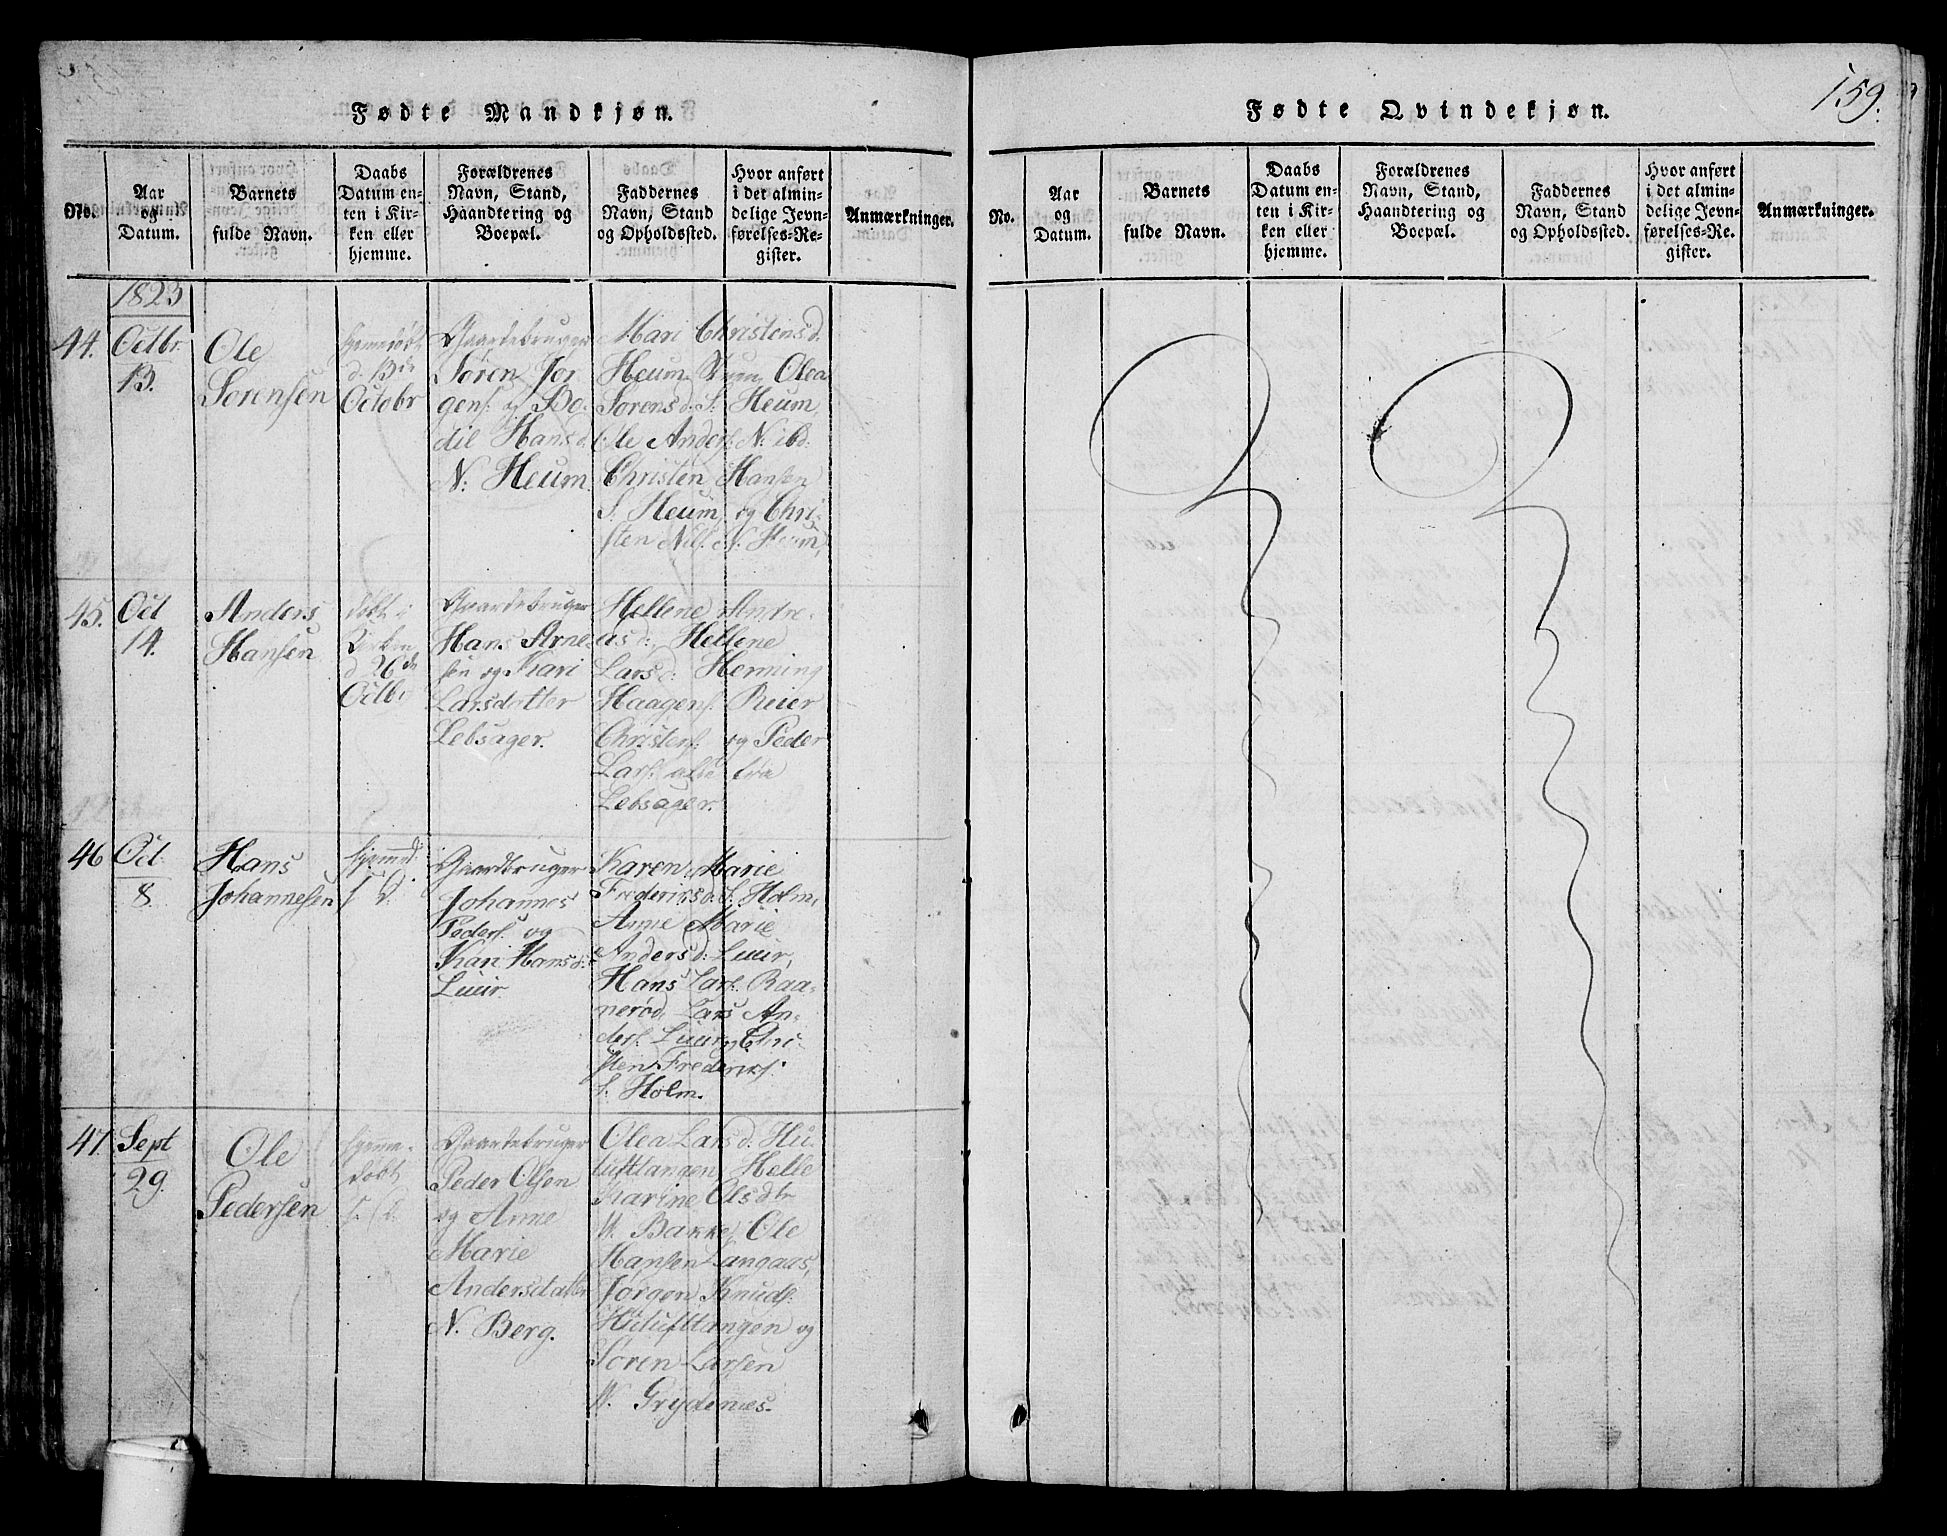 159.
Fødte Mandkjøn.
No.
Aar
og
Datum.
Barnets
fulde Navn.
Daabs
Datum en-
ten i Kir-
ken eller
hjemme.
Forældrenes
Navn, Stand,
Haandtering og
Boepæl.
Faddernes
Navn, Stand
og Opholdssted.
Hvor anført
i det almin-
delige Jevn-
førelses-Re-
gister.
Anmærkninger.
1823
44.
Octbr
13.
Ole
Sörensen
hjemedöbt
d. 13de
Octobr
Gaardebruger
Sören Jör
gens. og Bo-
dil Hansd.
N. Heum.
Mari Christensd.
Heum, Olea
Sorensd. S. Heum,
Ole Anders. N. ibd.
Christen Hansen
S. Heum, og Chri-
sten Nils. N. Heum,
45.
Oct
14.
Anders
Hansen
döbt i
Kirken
d 26de
Octbr
Gaardebruger
Hans Arne-
sen og Kari
Larsdatter
Lebsager.
Hellene Andre-
asd: Hellene
Larsd: Henning
Haagens. Reier
Christens. og Peder
Lars. alle fra
Lebsager.
46
Oct.
8.
Hans
Johannesen
hjemmed:
f. d.
Gaardbruger
Johannes
Peders. og
Kari Hansd:
Luur.
Karen Marie
Frederiksd. S. Holm,
Anne Marie
Andersd: Luur,
Hans Lars. Raa-
neröd, Lars An-
ders. Luur, Chri-
sten Frederiks.
S. Holm.
47.
Sept
29.
Ole
Pedersen
hjemme-
döbt
Gaardebruger
Peder Olsen
og Anne
Marie
Andersdatter
N. Berg.
Olea Larsd. Hu-
lufttangen, Helle
Karine Olsdtr
N. Bakke, Ole
Hansen Langaas,
Jörgen Knuds.
Hulufttangen og
Sören Larsen
N. Grydenæs.
Fødte Qvindekjøn.
No.
Aar
og
Datum.
Barnets
fulde Navn.
Daabs
Datum en-
ten i Kir-
ken eller
hjemme.
Forældrenes
Navn, Stand,
Haandtering og
Boepæl.
Faddernes
Navn, Stand
og Opholdssted.
Hvor anført
i det almin-
delige Jevn-
førelses-Re-
gister.
Anmærkninger.